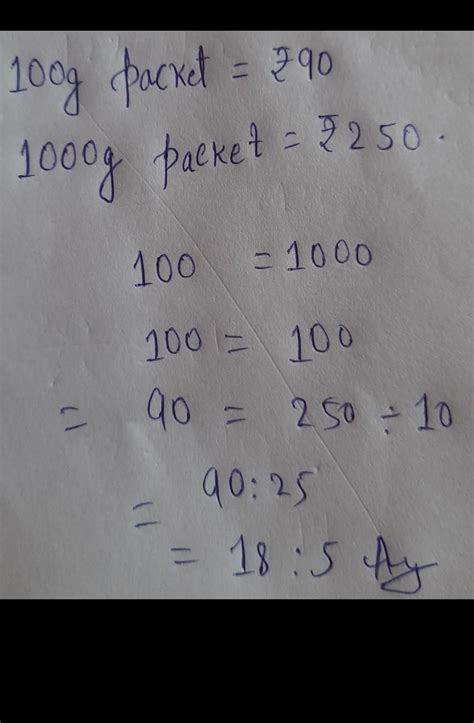 100g packet = ₹90
1000g packet = ₹250.
100 = 1000
100 = 100
= 90 = 250 ÷ 10
= 90:25
= 18:5 Ay